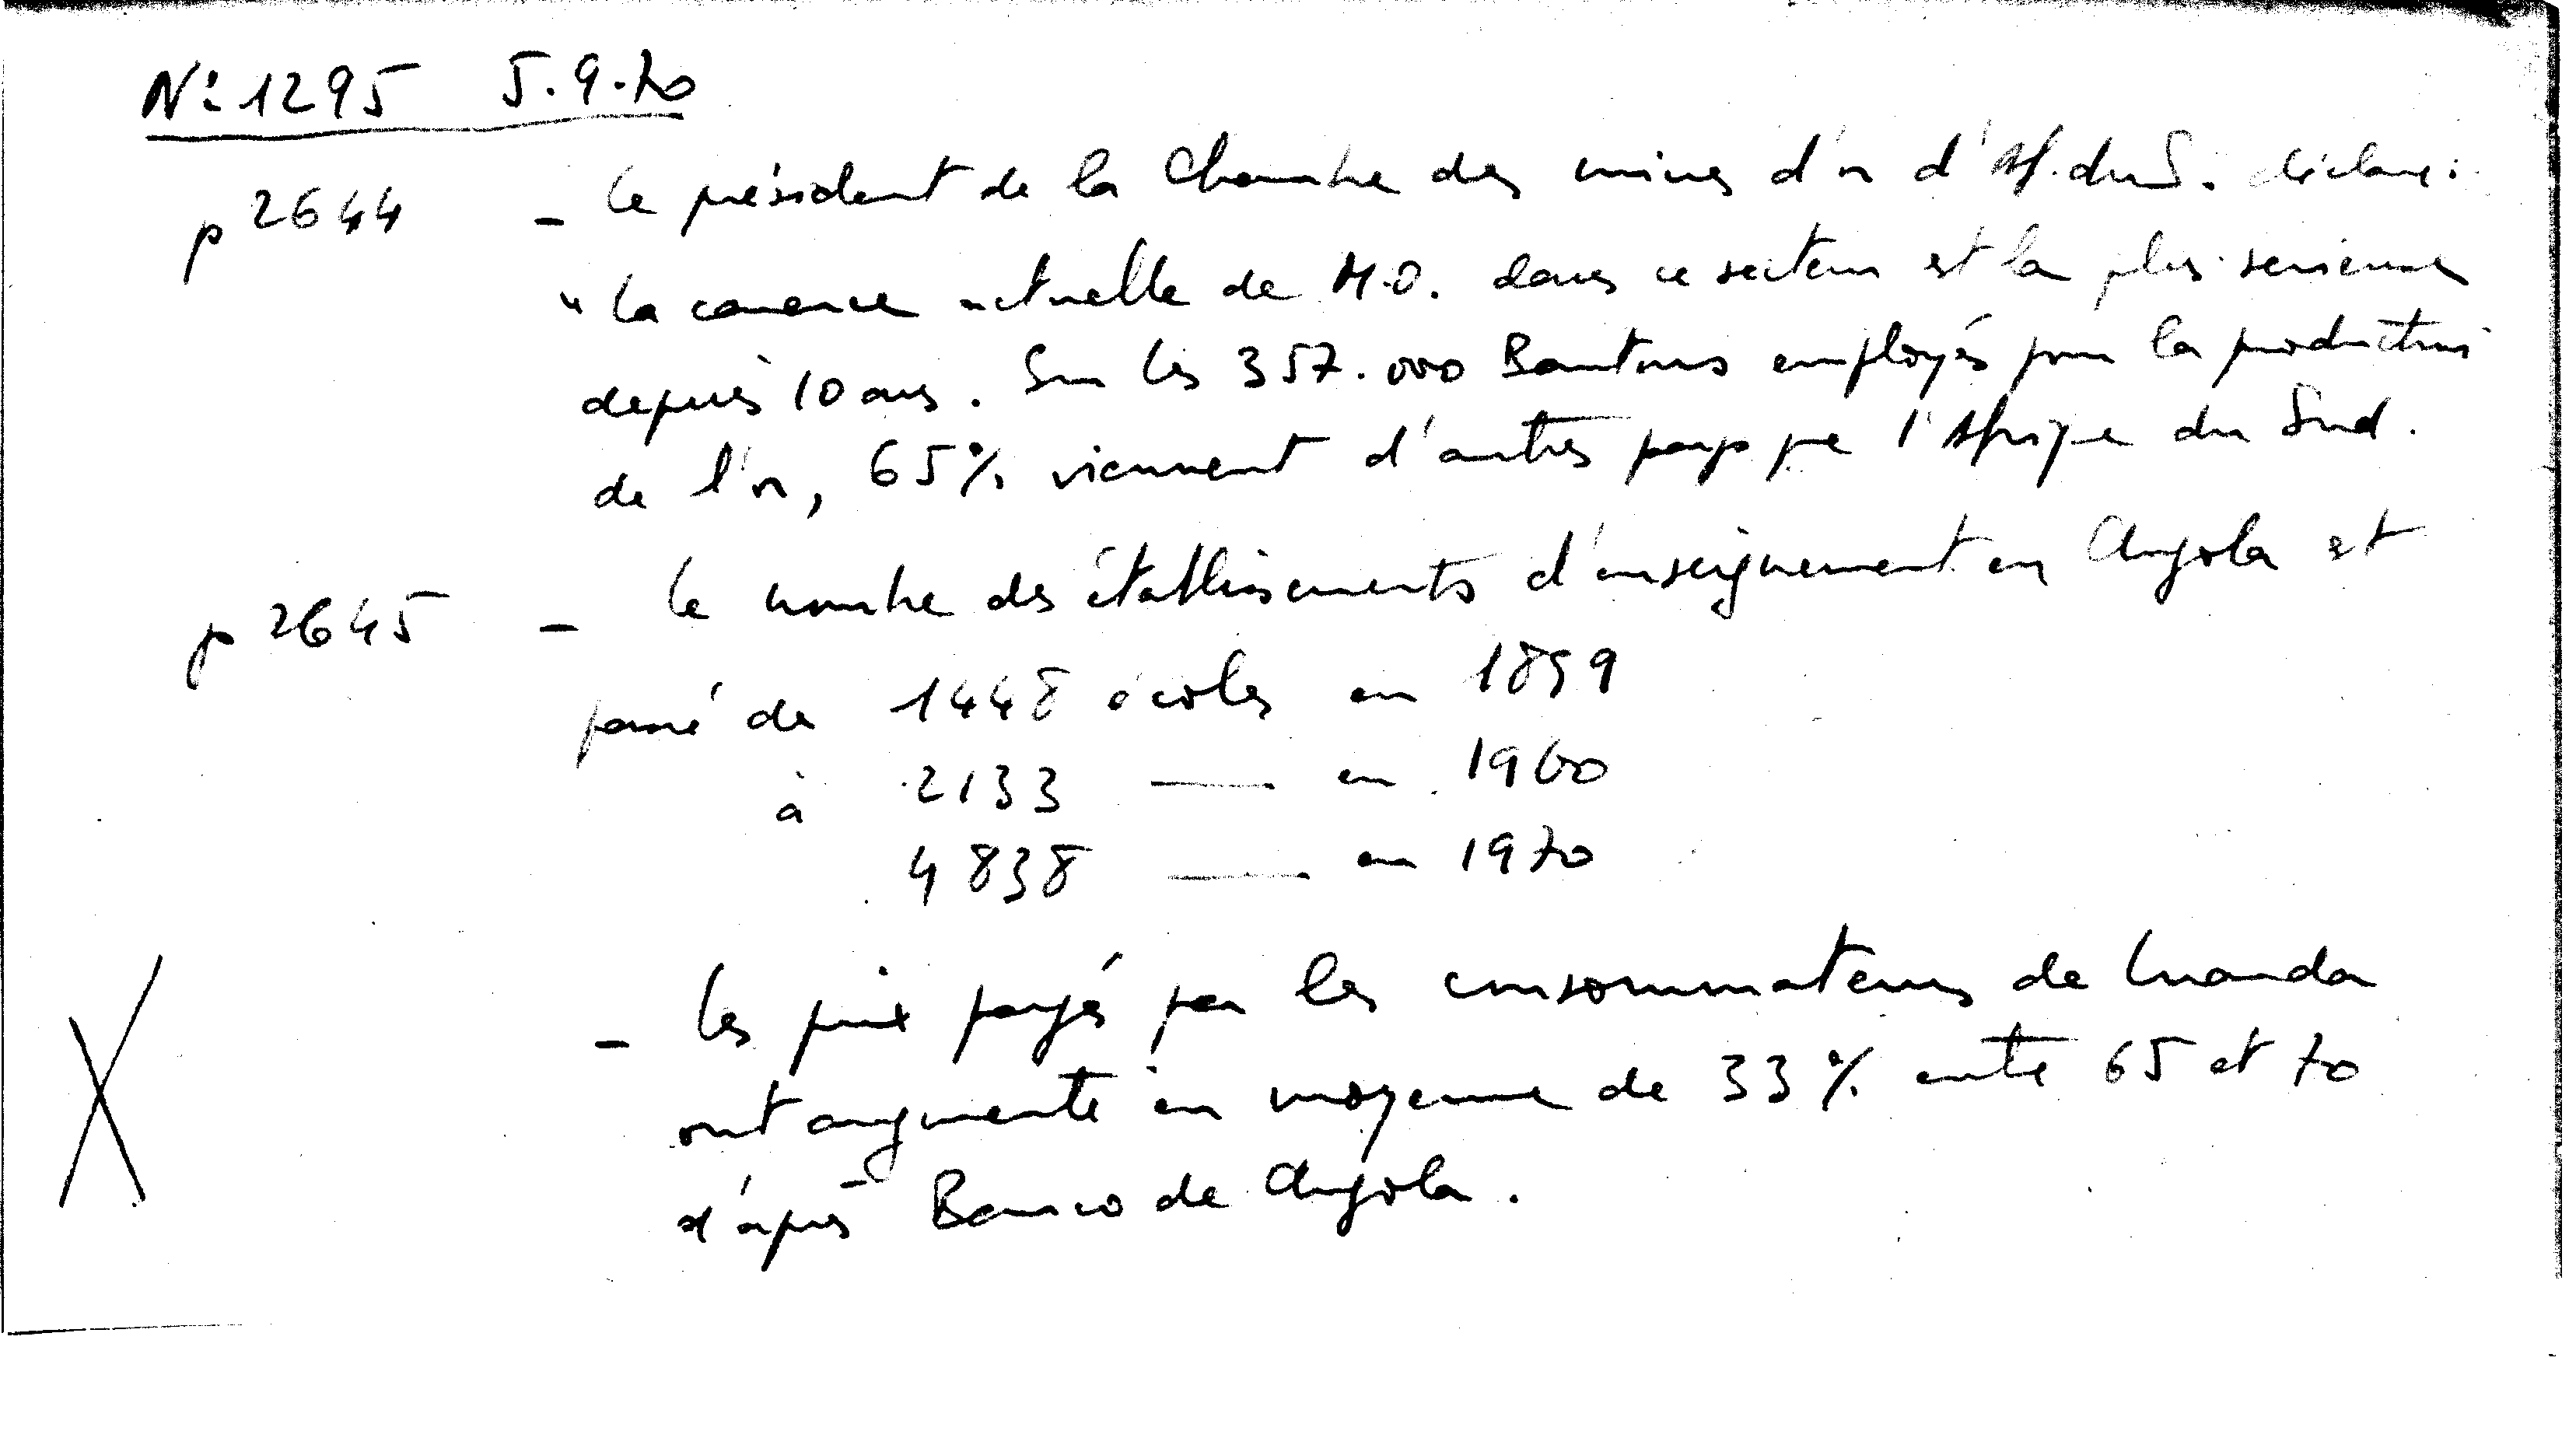 N° 1295 5.9.70
p 2644 - le président de la Chambre des mines d'or d'Af. du S. déclare :
" la carence actuelle de M.O. dans ce secteur est la plus serieuse
depuis 10 ans. Sur les 357.000 Bantous employés pour la production
de l'or, 65% viennent d'autres pays que l'Afrique du Sud.
p 2645 - le nombre des établissements d'enseignement en Angola est
passé de 1448 écoles en 1959
à 2133 — en 1960
4838 — en 1970
X - les prix payés par les consommateurs de Luanda
ont augmenté en moyenne de 33% entre 65 et 70
d'après Banco de Angola.